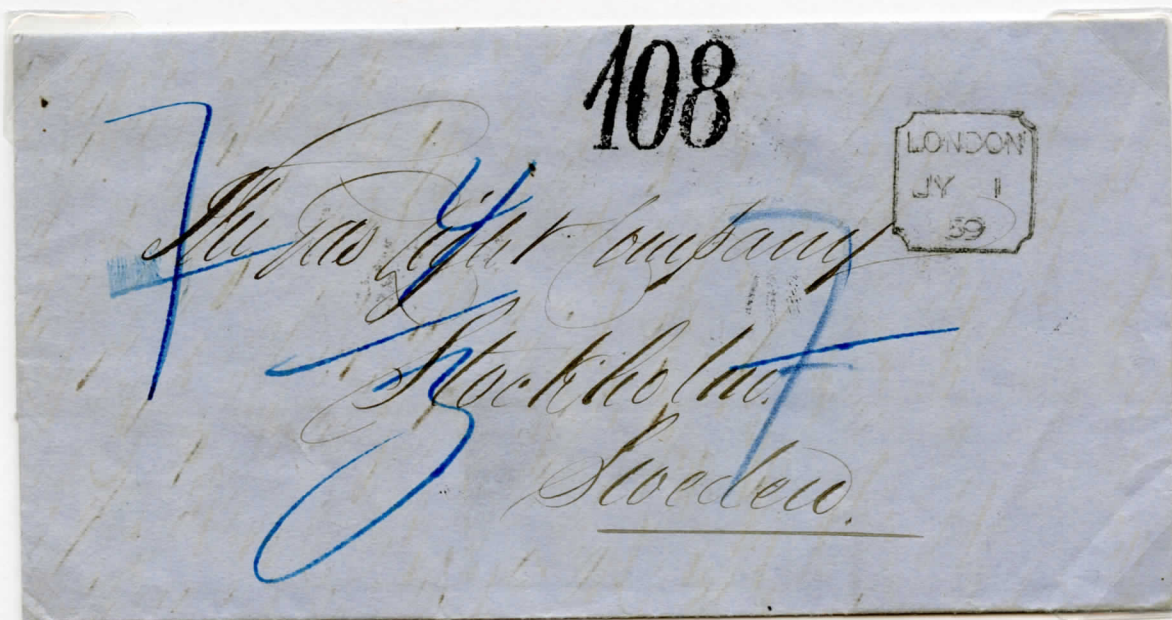 108
LONDON
JY 1
59
The Gas Light Company
Stockholm.
Sweden.
7
4
3
7